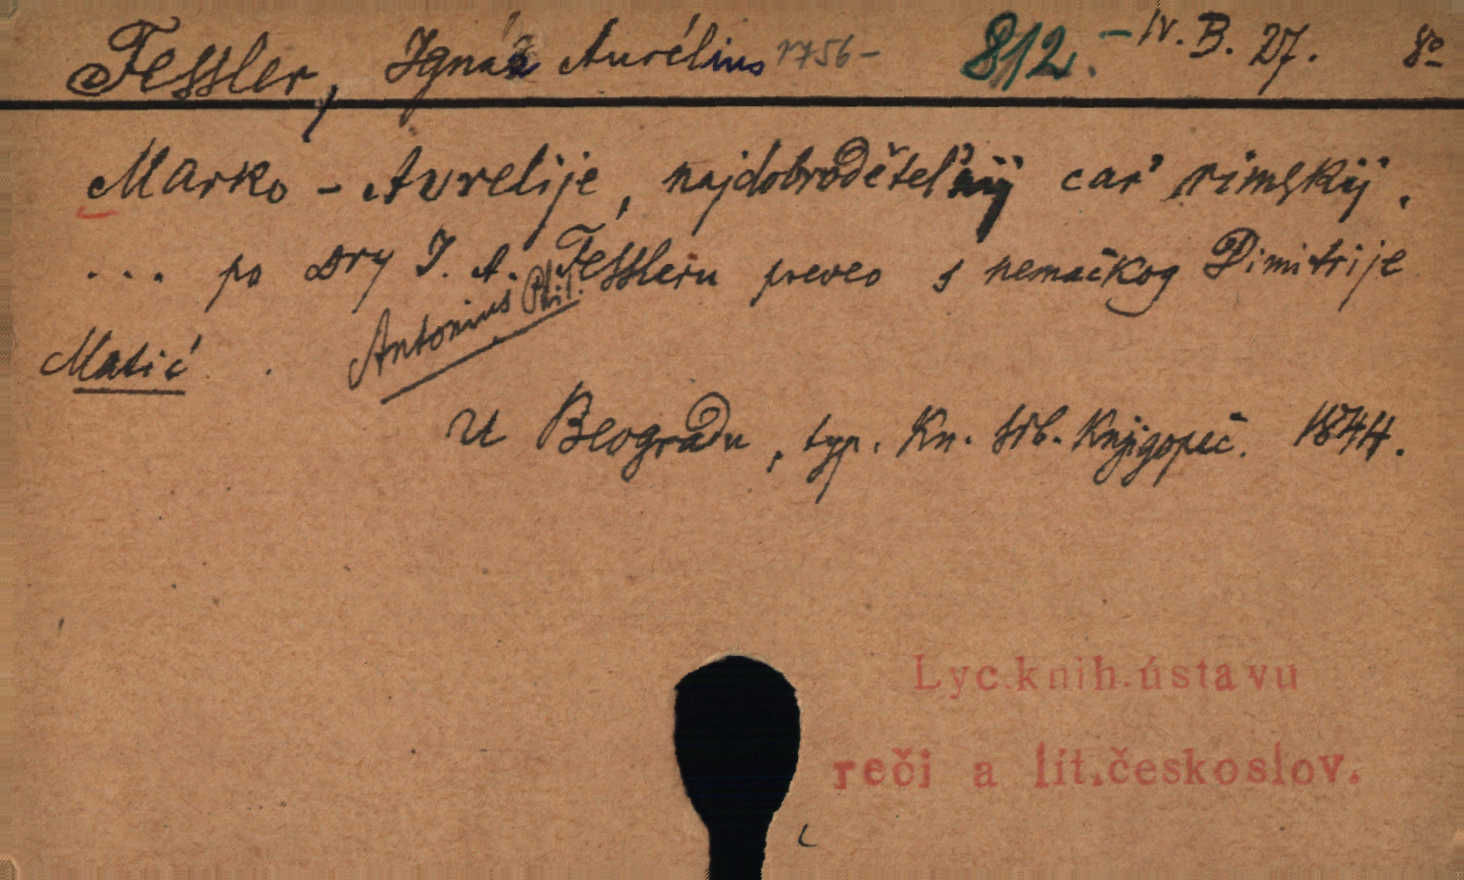 Fessler, Ignác Aurélius 1756- 812.- IV. B. 27. 8º
Marko - Avrelije, najdobroděteľnij carʼ rimskij.
... po Dry I. A. Fessleru preveo s nemačkog Dimitrije
Antonius Phil.
Matić.
U Beogradu, typ. Kn. srb. Knjigopeč. 1844.
Lyc. knih. ústavu
reči a lit. českoslov.